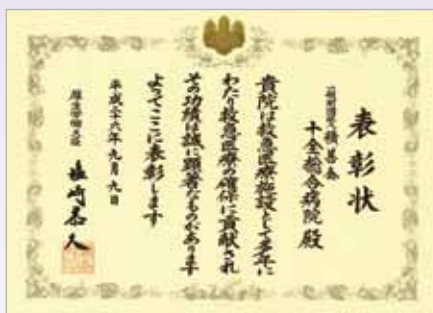 表彰状
一般財団法人積善会
十全総合病院 殿
貴院は救急医療施設として多年に
わたり救急医療の確保に貢献され
その功績は誠に顕著なものがあります
よってここに表彰します
平成二十六年九月九日
厚生労働大臣 塩崎恭久